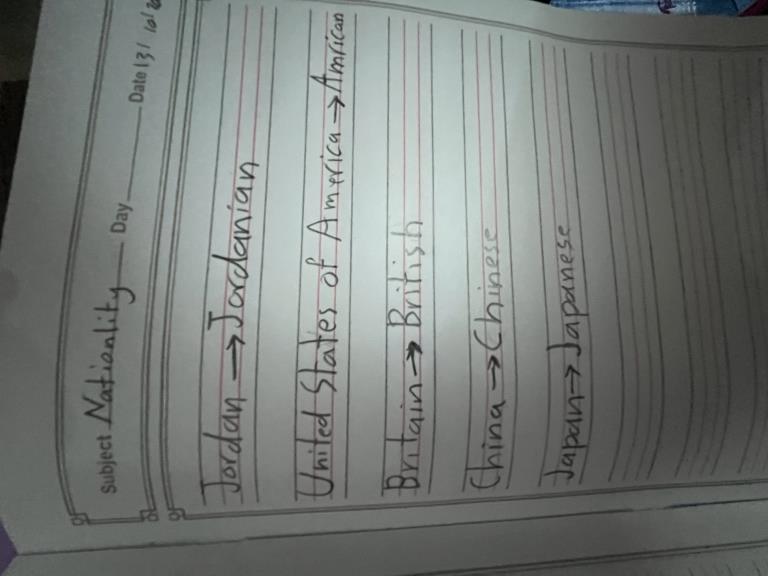 Subject Nationlity Day Date 13/10/20
Jordan → Jordanian
United States of America → Amrican
Britain → British
China → Chinese
Japan → Japanese